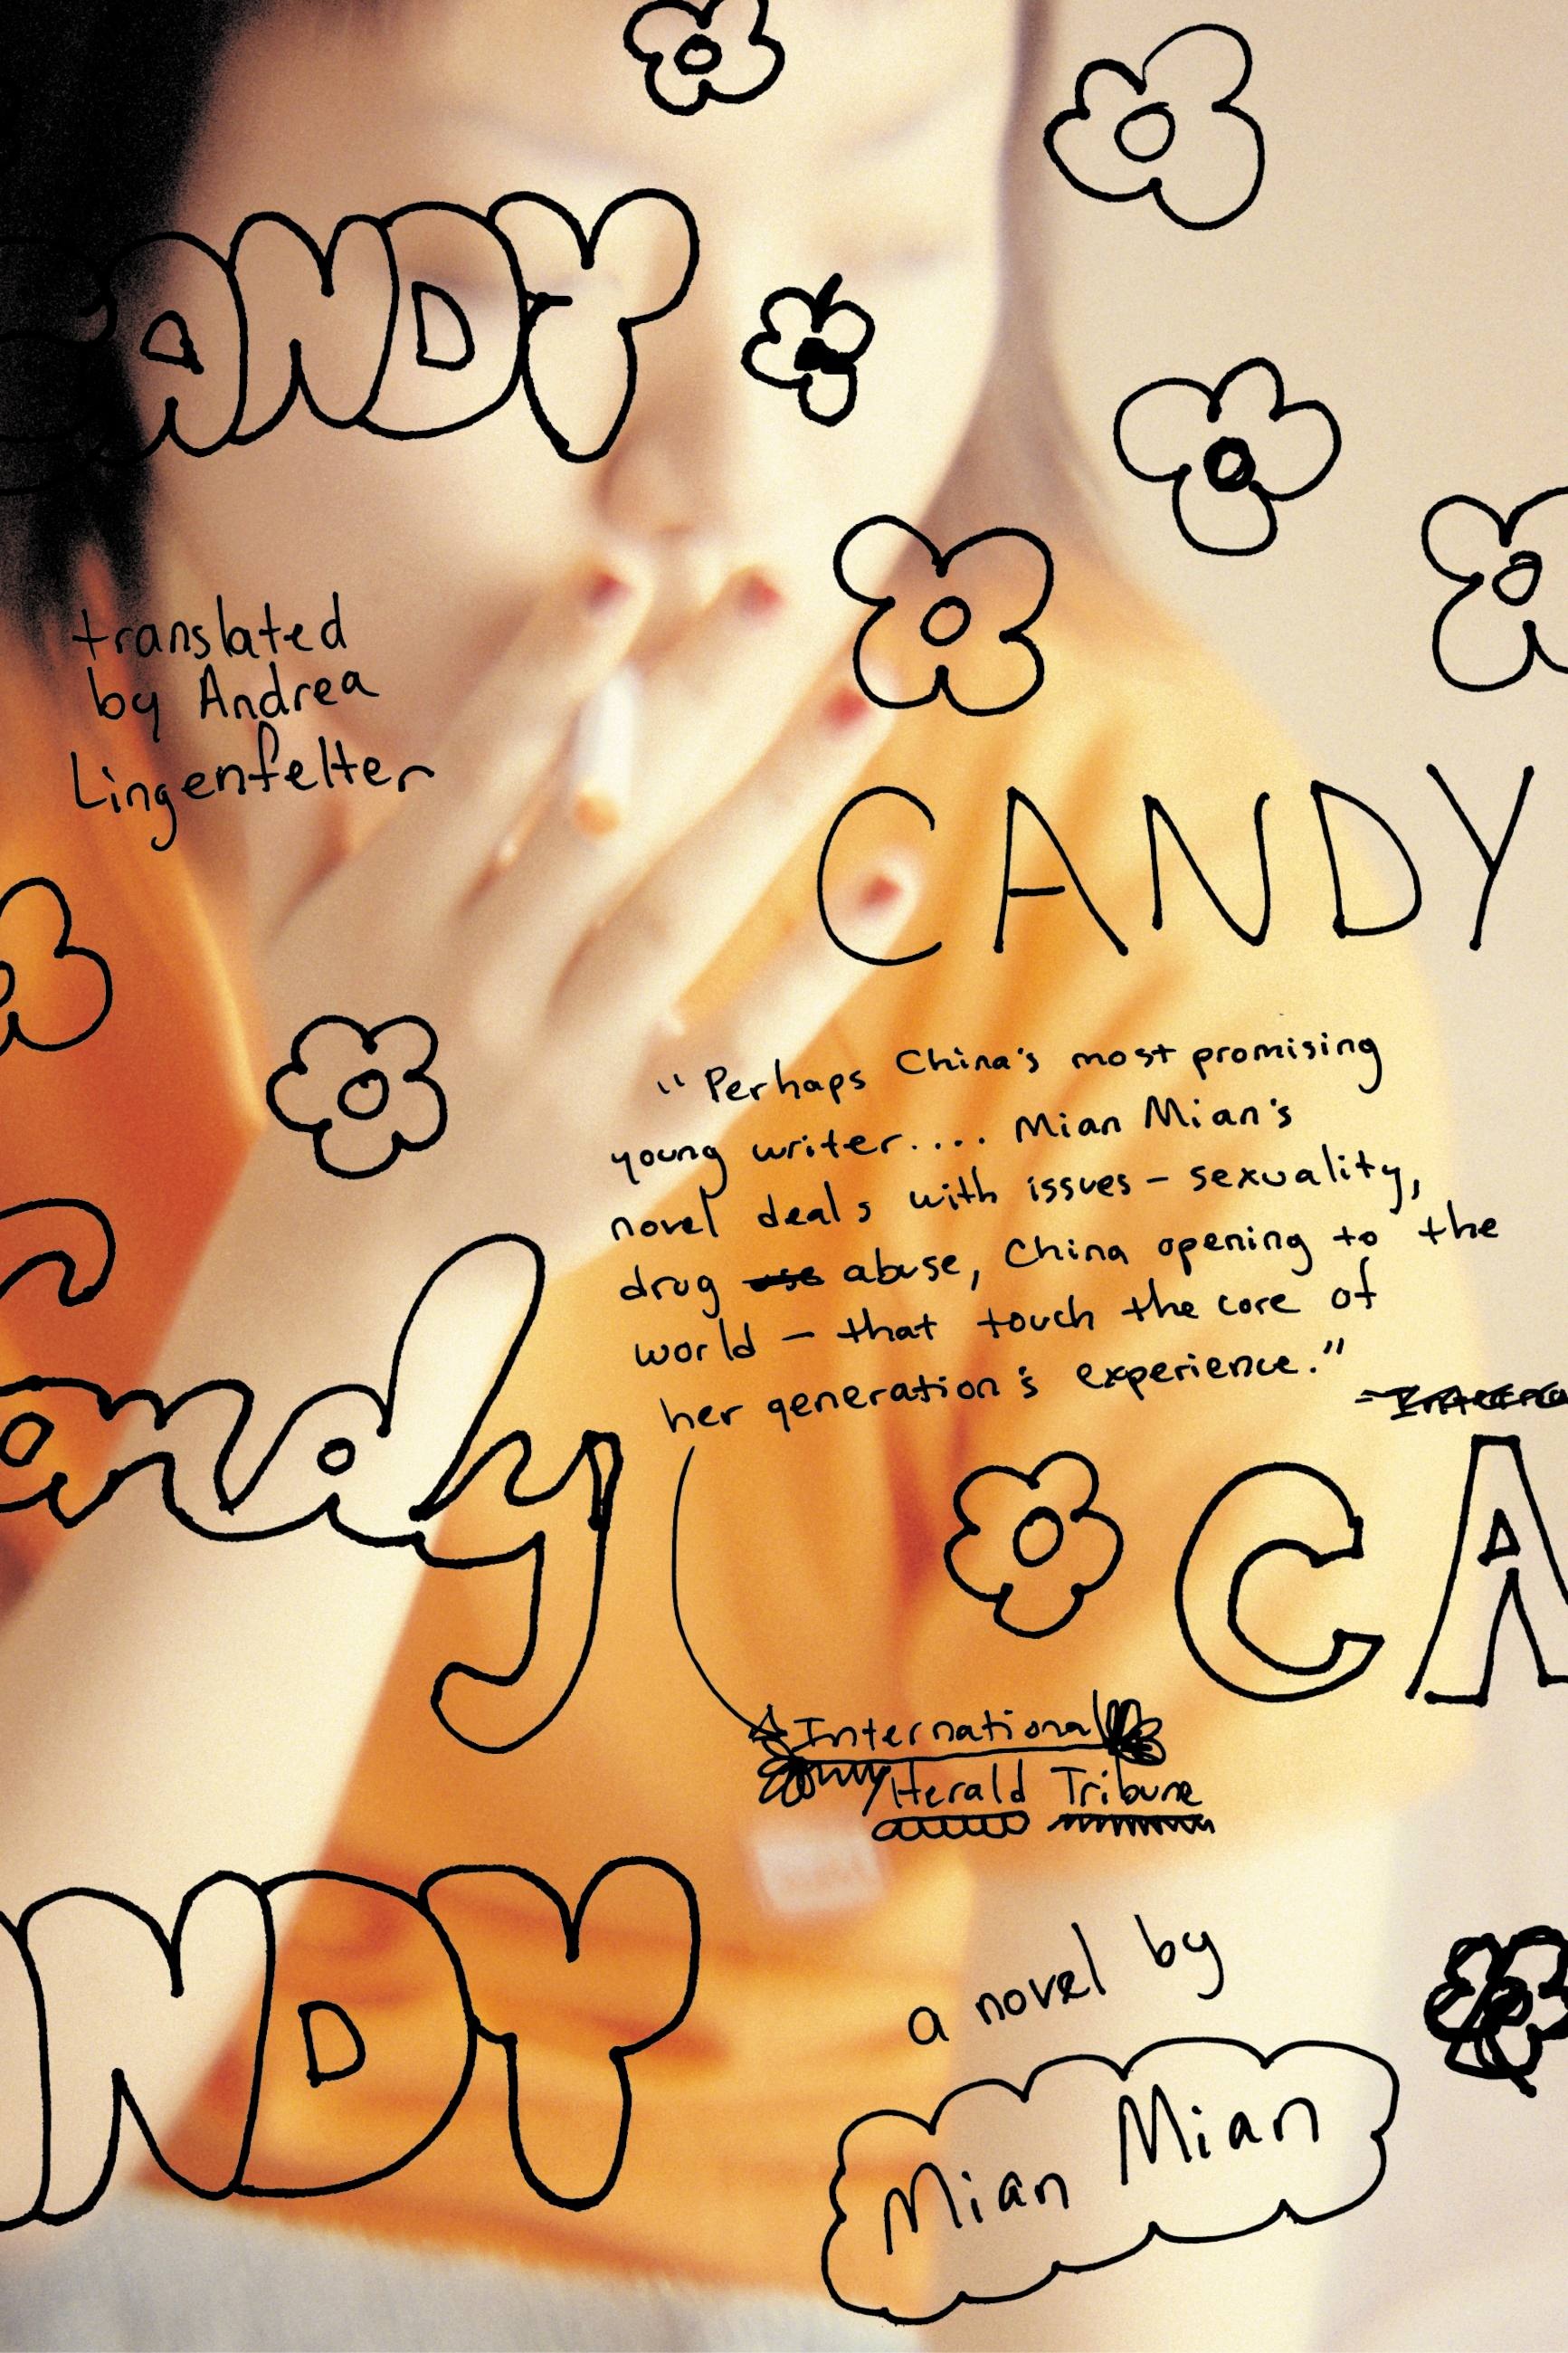 CANDY
translated
by Andrea
Lingenfelter
CANDY
"Perhaps China's most promising
young writer.... Mian Mian's
novel deals with issues – sexuality,
drug use abuse, China opening to the
world – that touch the core of
her generation's experience."
Candy
CA
International
Herald Tribune
NDY
a novel by
Mian Mian